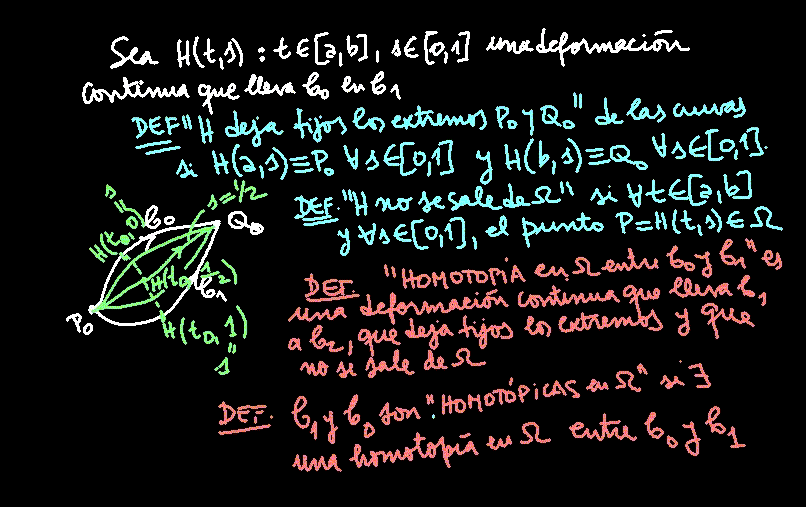 Sea H(t,s) : t∈[a,b], s∈[0,1] una deformación
continua que lleva C₀ en C₁
DEF "H deja fijos los extremos P₀ y Q₀" de las curvas
si H(a,s)≡P₀ ∀s∈[0,1] y H(b,s)≡Q₀ ∀s∈[0,1].
DEF. "H no se sale de Ω" si ∀t∈[a,b]
y ∀s∈[0,1], el punto P=H(t,s)∈Ω
s=1/2
C₀
Q₀
H(t₀,0)
s
H(t₀,1/2)
C₁
P₀
H(t₀,1)
s
DEF. "HOMOTOPÍA en Ω entre C₀ y C₁" es
una deformación continua que lleva C₁
a C₂, que deja fijos los extremos y que
no se sale de Ω
DEF. C₁ y C₀ son "HOMOTÓPICAS en Ω" si ∃
una homotopía en Ω entre C₀ y C₁